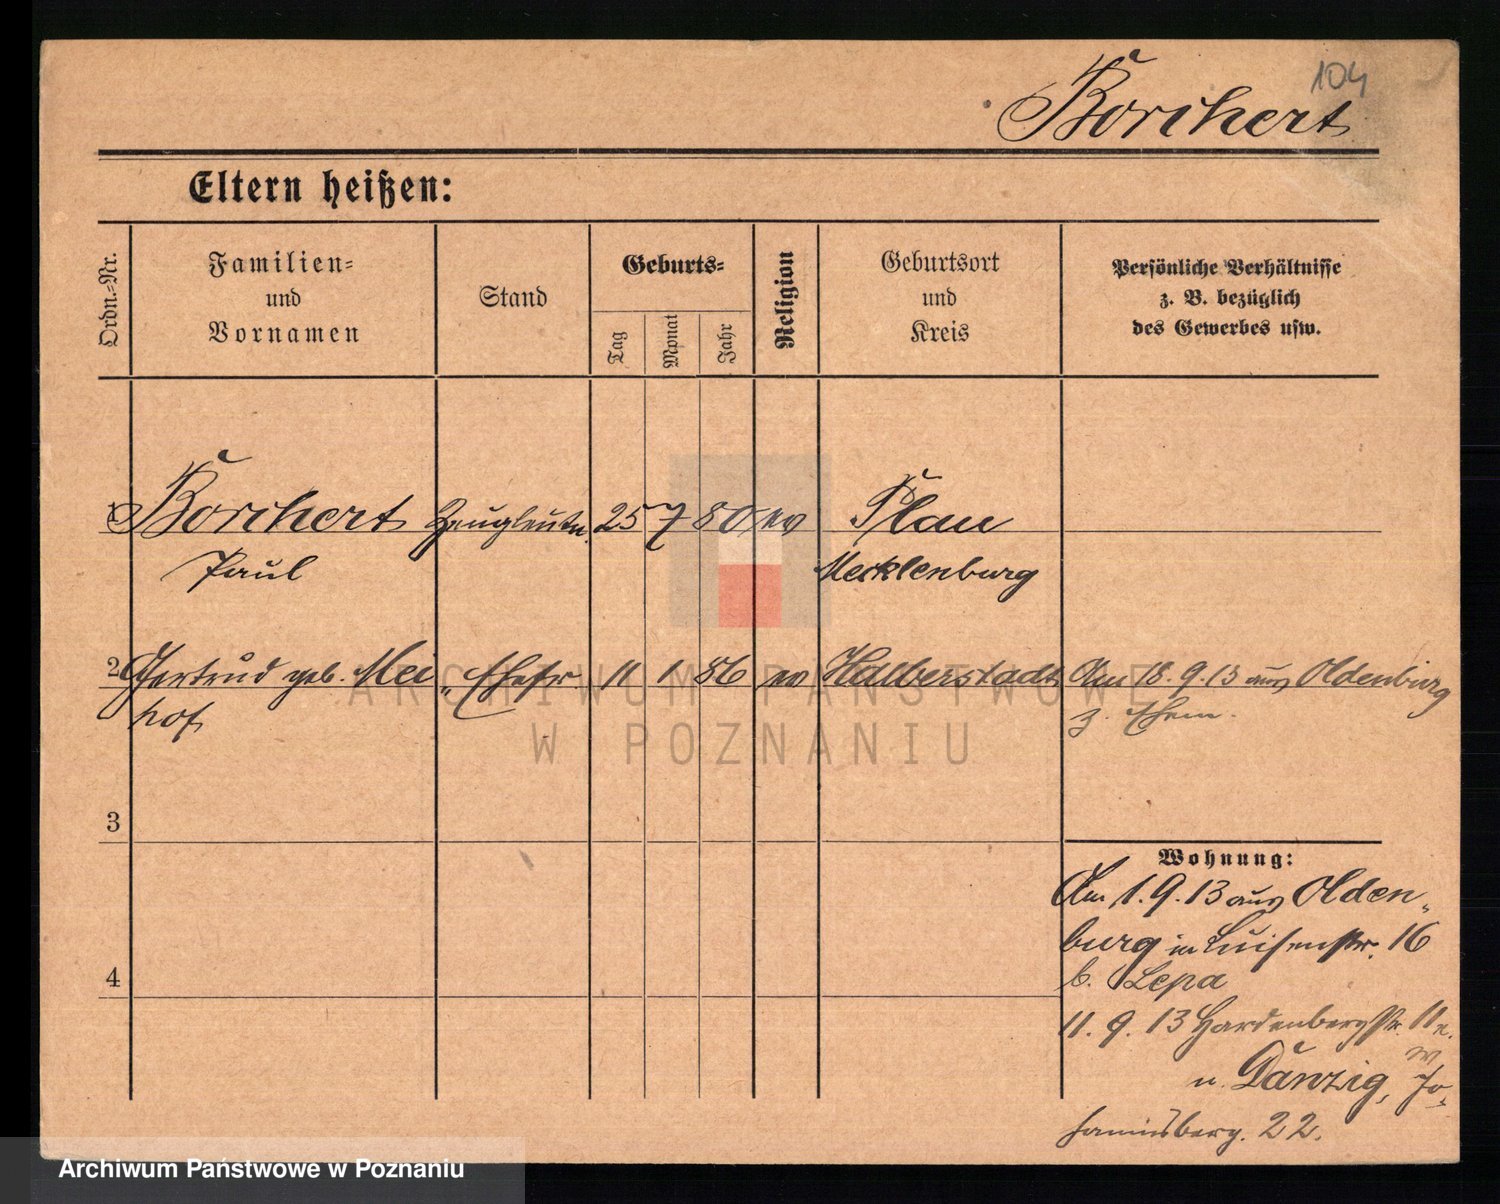 104
Borchert
Eltern heißen:
Ordn.-Nr.
Familien-
und
Vornamen
Stand
Geburts-
Tag
Monat
Jahr
Religion
Geburtsort
und
Kreis
Persönliche Verhältnisse
z. B. bezüglich
des Gewerbes usw.
1 Borchert Zeugleutn. 25 7 80 ev Plau
Paul Mecklenburg
2 Gertrud geb. Mei- Ehefr 11 1 86 ev Halberstadt Am 18.9.13 aus Oldenburg
hof z. Ehem.
3
Wohnung:
Am 1.9.13 aus Olden-
burg in Luisenstr. 16
b. Lepa
4
11.9.13 Hardenbergstr. 11
n. Danzig, Jo-
hannisberg. 22.
ARCHIWUM PAŃSTWOWE
W POZNANIU
Archiwum Państwowe w Poznaniu